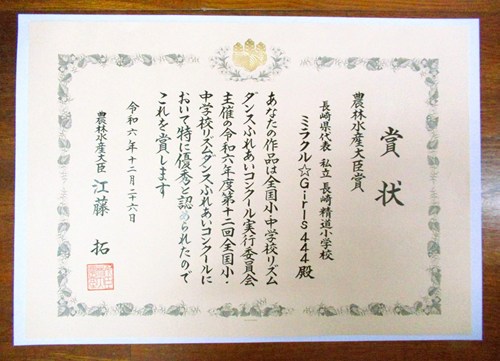 賞状
農林水産大臣賞
長崎県代表 私立 長崎精道小学校
ミラクル☆Girls444殿
あなたの作品は全国小・中学校リズム
ダンスふれあいコンクール実行委員会
主催の令和六年度第十二回全国小・
中学校リズムダンスふれあいコンクールに
おいて特に優秀と認められたので
これを賞します
令和六年十二月二十六日
農林水産大臣 江藤 拓